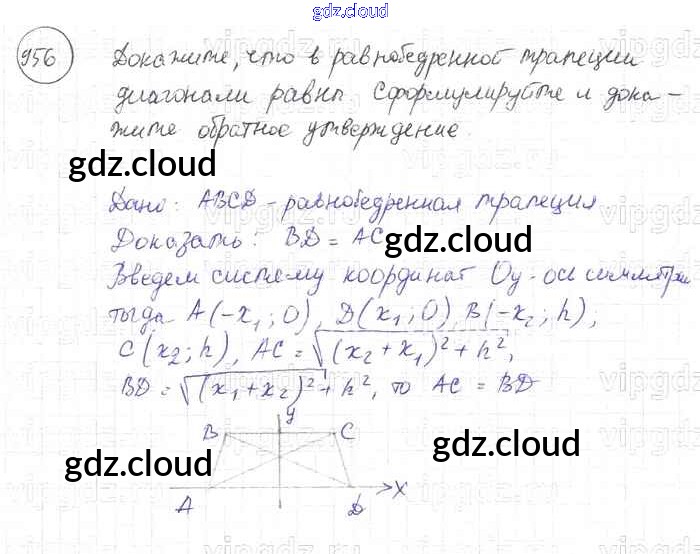 gdz.cloud
956 Докажите, что в равнобедренной трапеции
диагонали равны. Сформулируйте и дока-
жите обратное утверждение.
gdz.cloud
Дано: ABCD - равнобедренная трапеция
Доказать: BD = AC
gdz.cloud
Введем систему координат Oy - ось симметрии
тогда A(-x₁; 0), D(x₁; 0) B(-x₂; h),
C(x₂; h), AC = √(x₂ + x₁)² + h²,
BD = √(x₁ + x₂)² + h², то AC = BD
y
B C
gdz.cloud gdz.cloud
A D x